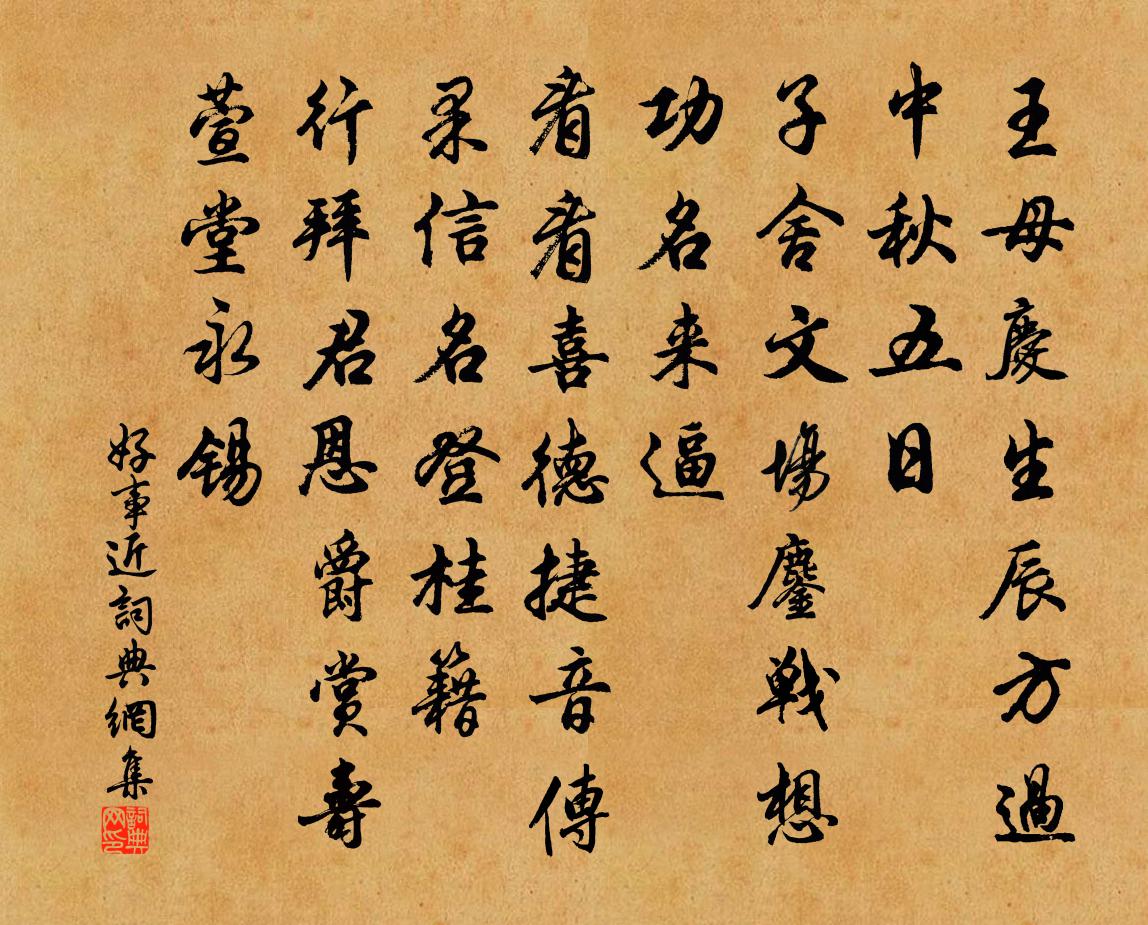 王母慶生辰方過
中秋五日
子舍文場鏖戰想
功名来逼
看看喜德捷音傳
果信名登桂籍
行拜君恩爵賞壽
萱堂永錫
好事近詞典網集
詞典网印